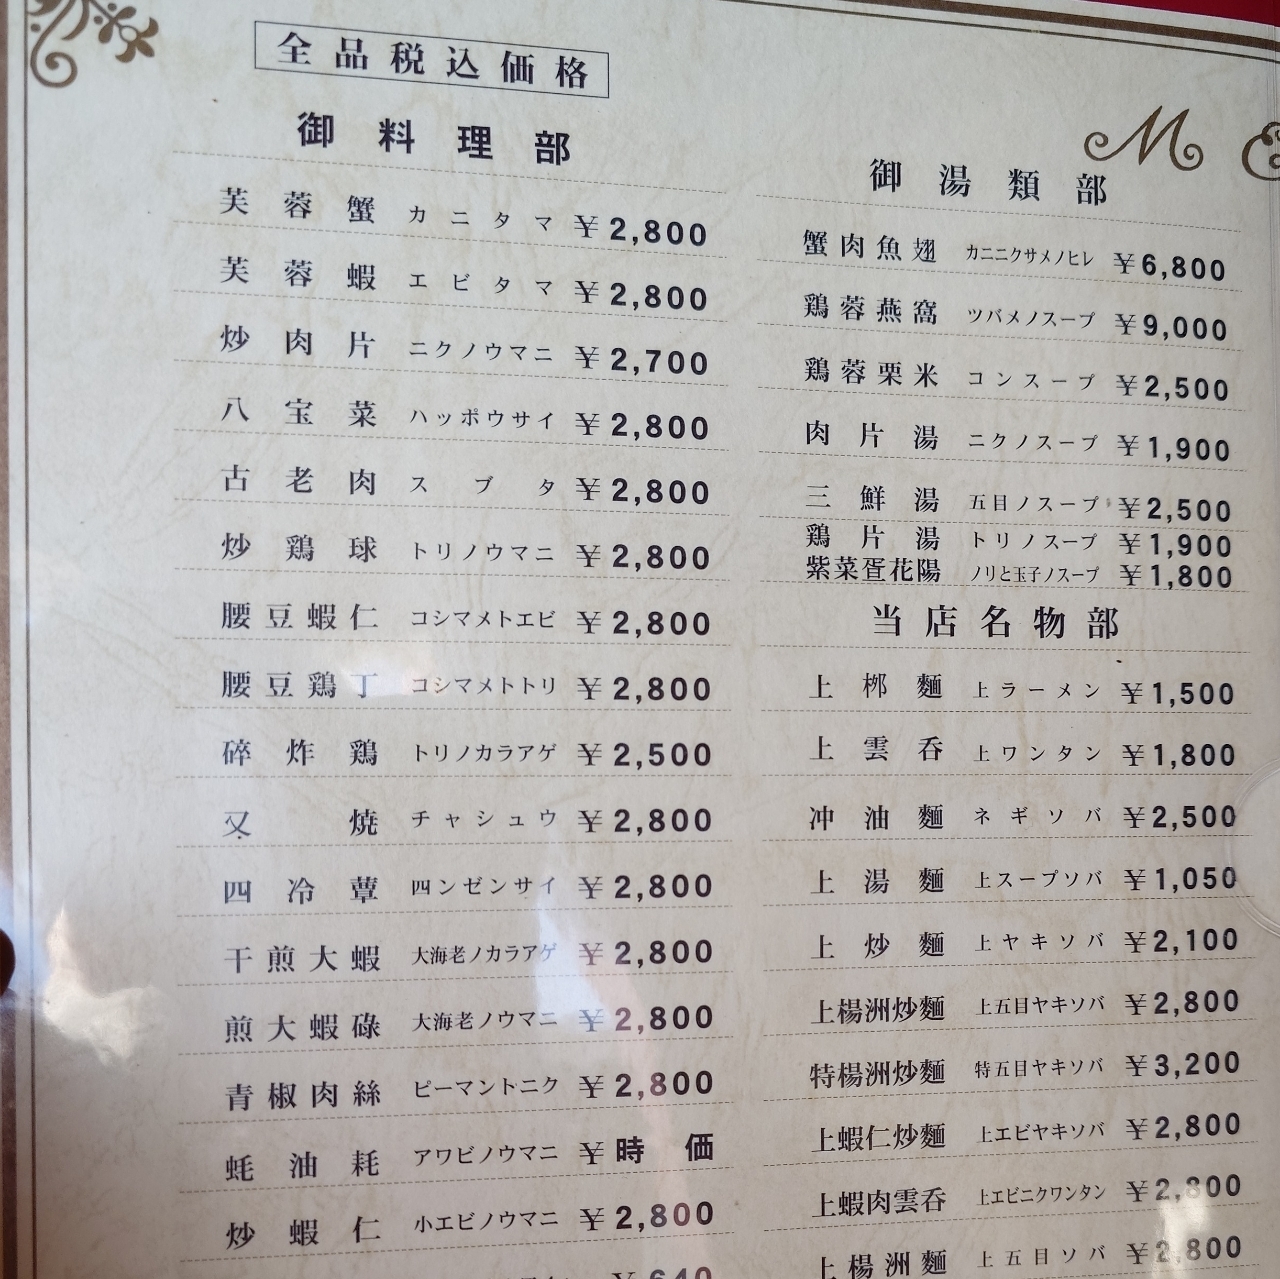 全品税込価格
御料理部
芙蓉蟹 カニタマ ¥2,800
芙蓉蝦 エビタマ ¥2,800
炒肉片 ニクノウマニ ¥2,700
八宝菜 ハッポウサイ ¥2,800
古老肉 スブタ ¥2,800
炒鶏球 トリノウマニ ¥2,800
腰豆蝦仁 コシマメトエビ ¥2,800
腰豆鶏丁 コシマメトトリ ¥2,800
碎炸鶏 トリノカラアゲ ¥2,500
叉焼 チャシュウ ¥2,800
四冷蕈 四ンゼンサイ ¥2,800
干煎大蝦 大海老ノカラアゲ ¥2,800
煎大蝦碌 大海老ノウマニ ¥2,800
青椒肉絲 ピーマントニク ¥2,800
蚝油耗 アワビノウマニ ¥時価
炒蝦仁 小エビノウマニ ¥2,800
¥640
M
御湯類部
蟹肉魚翅 カニニクサメノヒレ ¥6,800
鶏蓉燕窩 ツバメノスープ ¥9,000
鶏蓉栗米 コンスープ ¥2,500
肉片湯 ニクノスープ ¥1,900
三鮮湯 五目ノスープ ¥2,500
鶏片湯 トリノスープ ¥1,900
紫菜疍花陽 ノリと玉子ノスープ ¥1,800
当店名物部
上桞麵 上ラーメン ¥1,500
上雲呑 上ワンタン ¥1,800
冲油麵 ネギソバ ¥2,500
上湯麵 上スープソバ ¥1,050
上炒麵 上ヤキソバ ¥2,100
上楊洲炒麵 上五目ヤキソバ ¥2,800
特楊洲炒麵 特五目ヤキソバ ¥3,200
上蝦仁炒麵 上エビヤキソバ ¥2,800
上蝦肉雲呑 上エビニクワンタン ¥2,800
上楊洲麵 上五目ソバ ¥2,800